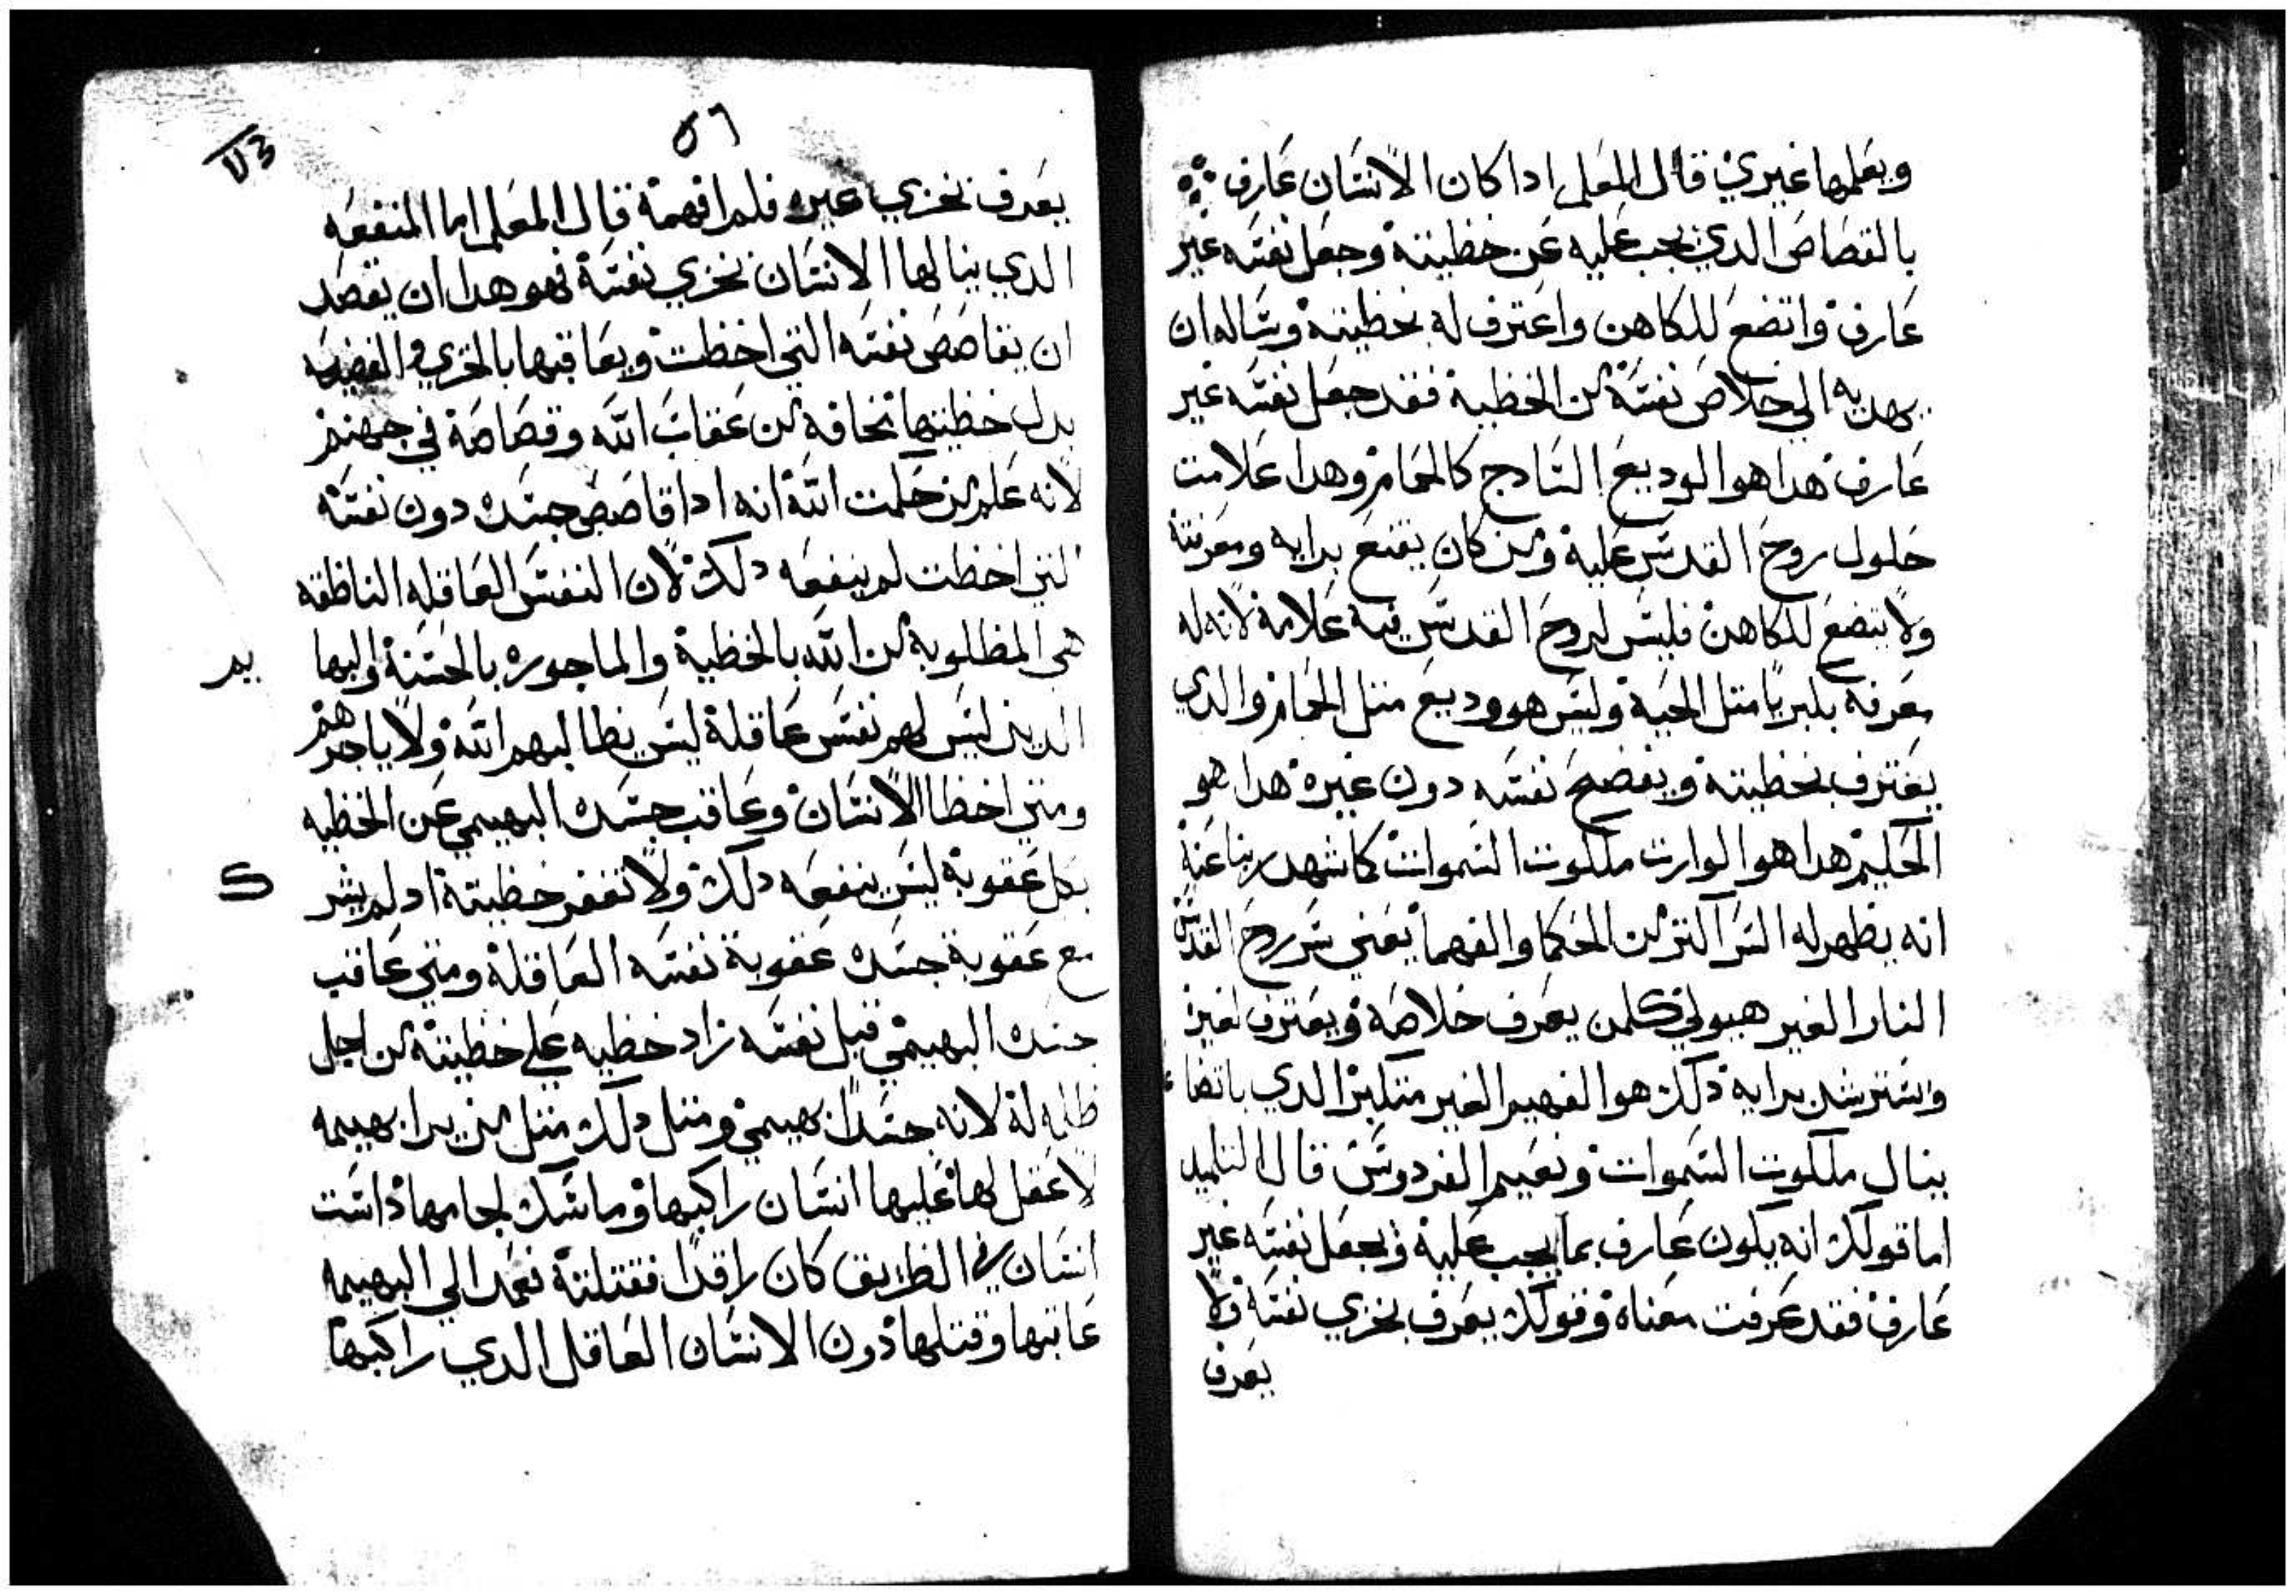 ويعلمها غيري قال المعلم ادا كان الانسان عارف
بالقصاص الدي يجب عليه عن خطيته وجعل نفسه غير
عارف واتضع للكاهن واعترف له بخطيته وساله ان
يهديه الي خلاص نفسه من الخطية فقد جعل نفسه غير
عارف هدا هو الوديع السادج كالحمام وهدا علامت
حلول روح القدس عليه ومن كان يقنع برايه ومعرفته
ولا يتضع للكاهن فليس لروح القدس فيه علامة لانه له
معرفة بليريا متل الحية وليس هو وديع متل الحمام والدي
يعترف بخطيته ويفضح نفسه دون غيره هدا هو
الحليم هدا هو الوارت ملكوت السموات كما شهد ربنا عنه
انه يظهر له السر اكتر من الحكما والفهما يعني سر روح القدس
النار الغير هيولي كلمن يعرف خلاصه ويعترف لغيره
ويسترشد برايه دلك هو الفهيم الغير متكبر الدي باتضاء
ينال ملكوت السموات ونعيم الفردوس قال التلميد
اما قولك انه يكون عارف بما يجب عليه ويجعل نفسه غير
عارف فقد عرفت معناه وقولك يعرف بخزي نفسه ولا
يعرف
٥٦
يعرف بخزي غيره فلم افهمة قال المعلم اما المنفعه
الدي ينالها الانسان بخزي نفسة فهو هدا ان يقصد
ان يقاصص نفسه التي اخطت ويعاقبها بالخزي والفضيحه
بدل خطيتها مخافة من عقاب الله وقصاصة في جهنم
لانه علم من حكمت الله انه ادا قاصص جسده دون نفسه
التي اخطت لم ينفعه دلك لان النفس العاقله الناطقه
هي المطلوبة من الله بالخطية والماجوره بالحسنة والبها
يم
الدين ليس لهم نفس عاقلة ليس يطالبهم الله ولا ياجرهم
ومتي اخطا الانسان وعاقب جسده البهيمي عن الخطيه
بكل عقوبة ليس ينفعه دلك ولا تغفر خطيته اد لم يشر
ك
مع عقوبة جسده عقوبة نفسه العاقلة ومتي عاقب
جسده البهيمي قبل نفسه زاد خطيه علي خطيته من اجل
ظلمه له لانه جسدا بهيمي ومتل دلك متل من يرا بهيمه
لا عقل لها عليها انسان راكبها وماسك لجامها داست
انسان في الطريق كان راقدا فقتلته فعمد الي البهيمه
عاقبها وقتلها دون الانسان العاقل الدي راكبها